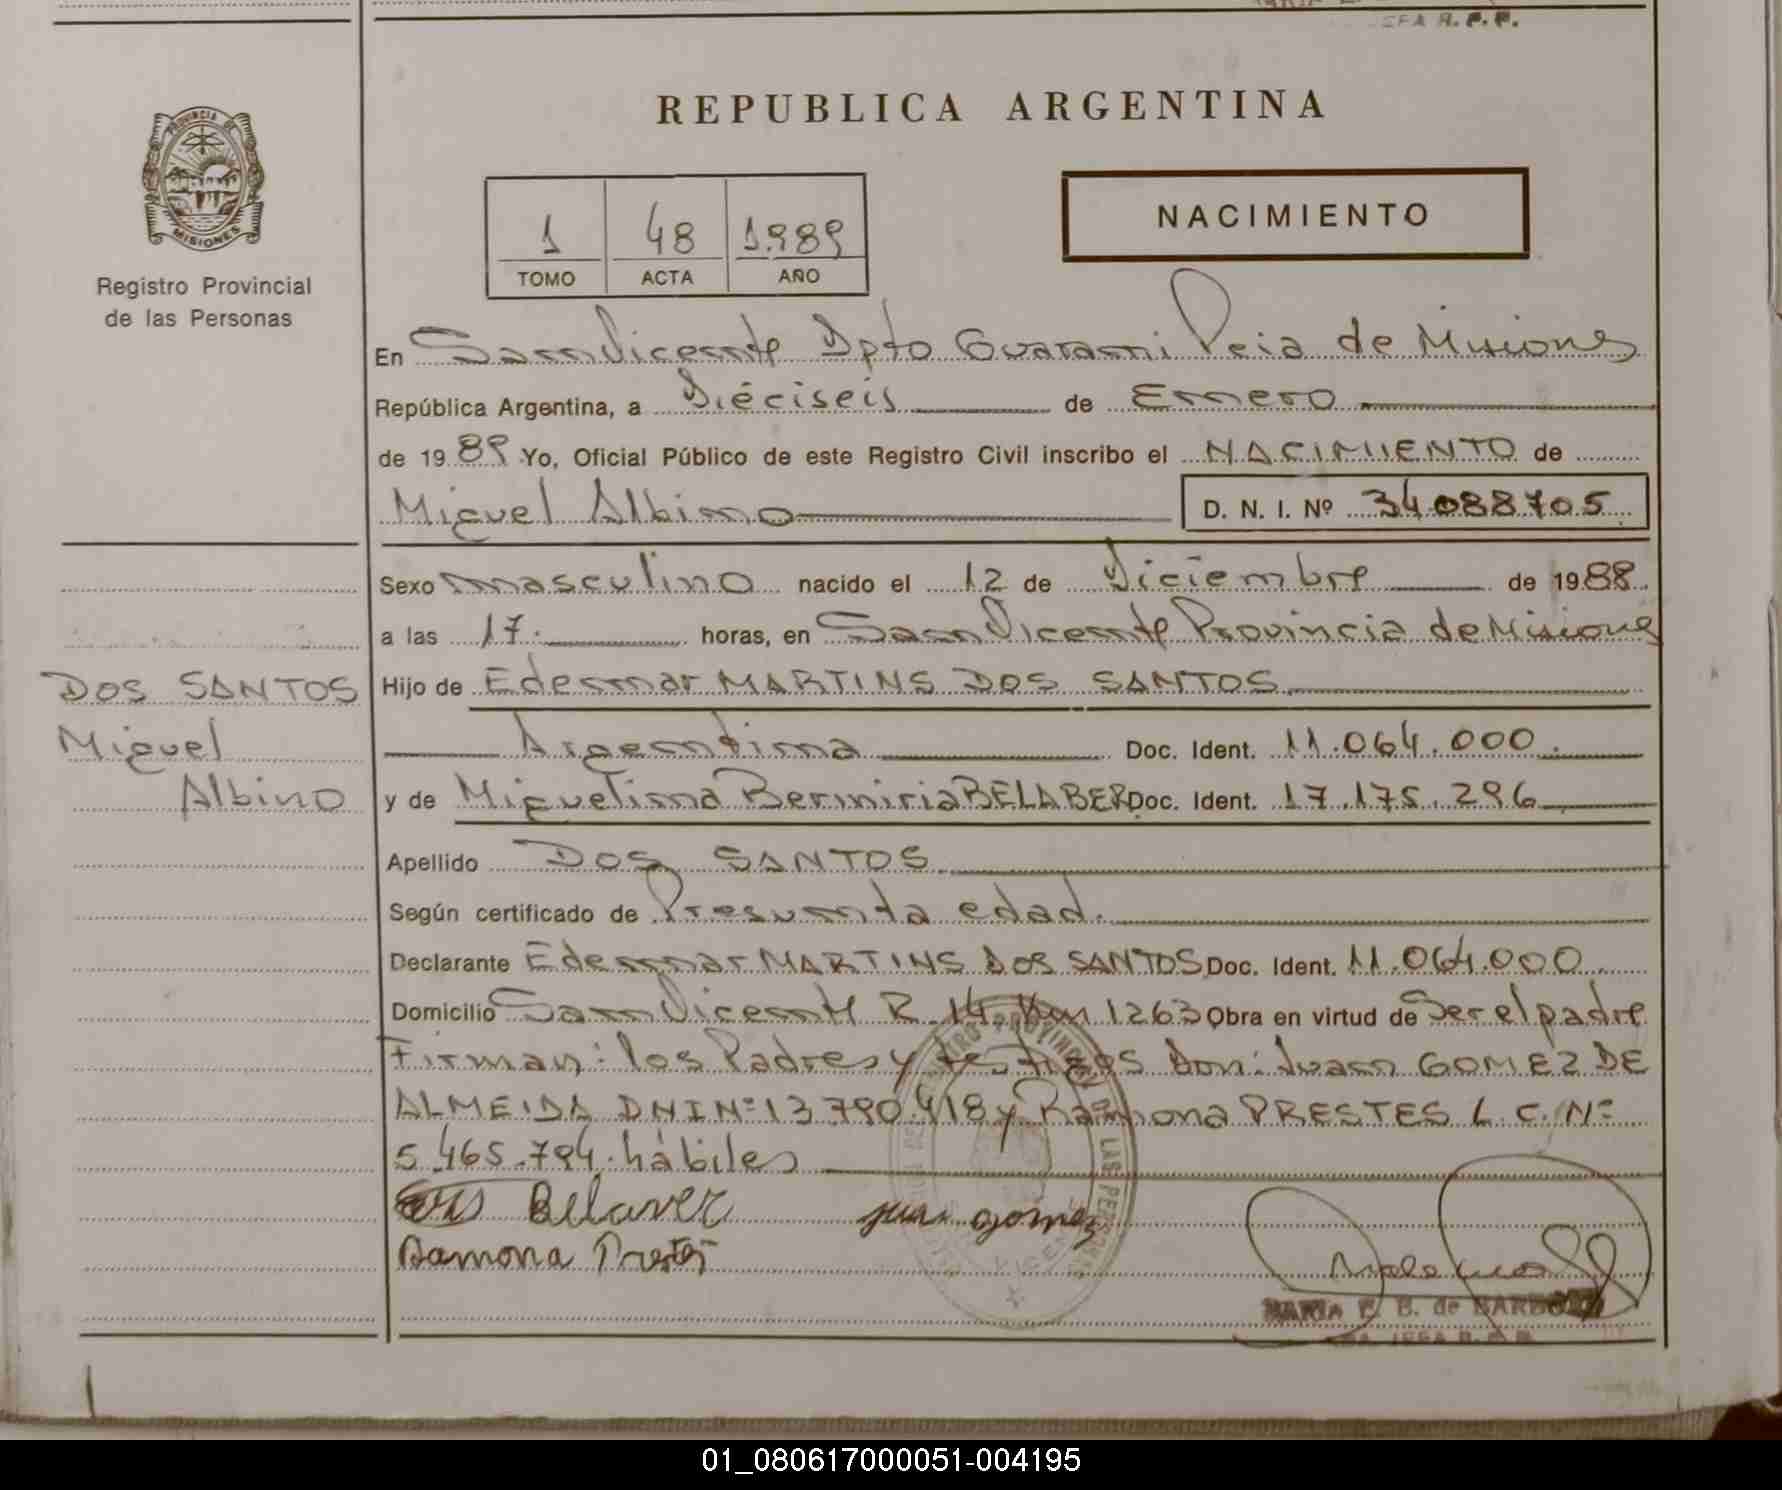 JEFA R. P. P.
PROVINCIA DE
MISIONES
Registro Provincial
de las Personas
REPUBLICA ARGENTINA
1 48 1.989
TOMO ACTA AÑO
NACIMIENTO
En San Vicente Dpto Guarani Pcia de Misiones
República Argentina, a Diéciseis de Enero
de 1989 Yo, Oficial Público de este Registro Civil inscribo el NACIMIENTO de
Miguel Albino D. N. I. Nº 34088705
Sexo masculino nacido el 12 de Diciembre de 1988
a las 17. horas, en San Vicente Provincia de Misiones
DOS SANTOS
Miguel
Albino
Hijo de Edenmar MARTINS DOS SANTOS
Argentina Doc. Ident. 11.064.000.
y de Miguelina Berminiria BELABER Doc. Ident. 17.175.296
Apellido DOS SANTOS
Según certificado de Presunta edad.
Declarante Edenmar MARTINS DOS SANTOS Doc. Ident. 11.064.000
Domicilio San Vicente R. 14 Km 1263 Obra en virtud de Ser el padre
Firman: los Padres y testigos Don: Juan GOMEZ DE
ALMEIDA DNI Nº 13.790.418 y Ramona PRESTES L. C. Nº
5.465.794. hábiles
Belaver juan gomez
Ramona Prestes
MARIA E. B. de BARBOZA
JEFA R. P. P.
01_080617000051-004195